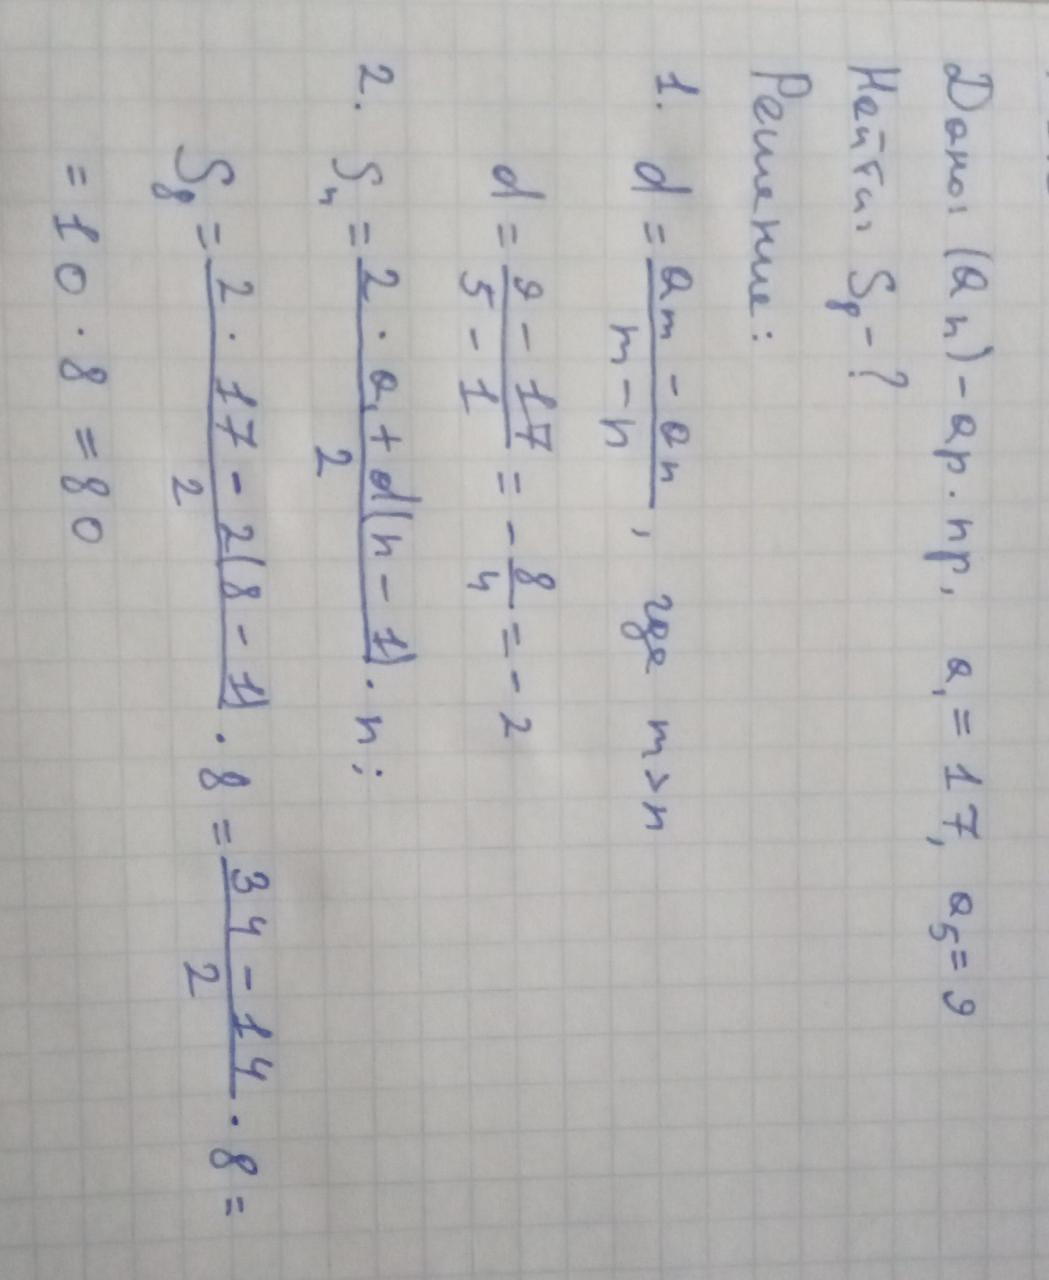 Дано: (an) - ар. пр, a₁ = 17, a₅ = 9
Найти: S₈ - ?
Решение:
1. d = (aₘ - aₙ)/(m - n), где m > n
d = (9 - 17)/(5 - 1) = - 8/4 = - 2
2. Sₙ = (2 · a₁ + d(n - 1))/2 · n;
S₈ = (2 · 17 - 2(8 - 1))/2 · 8 = (34 - 14)/2 · 8 =
= 10 · 8 = 80